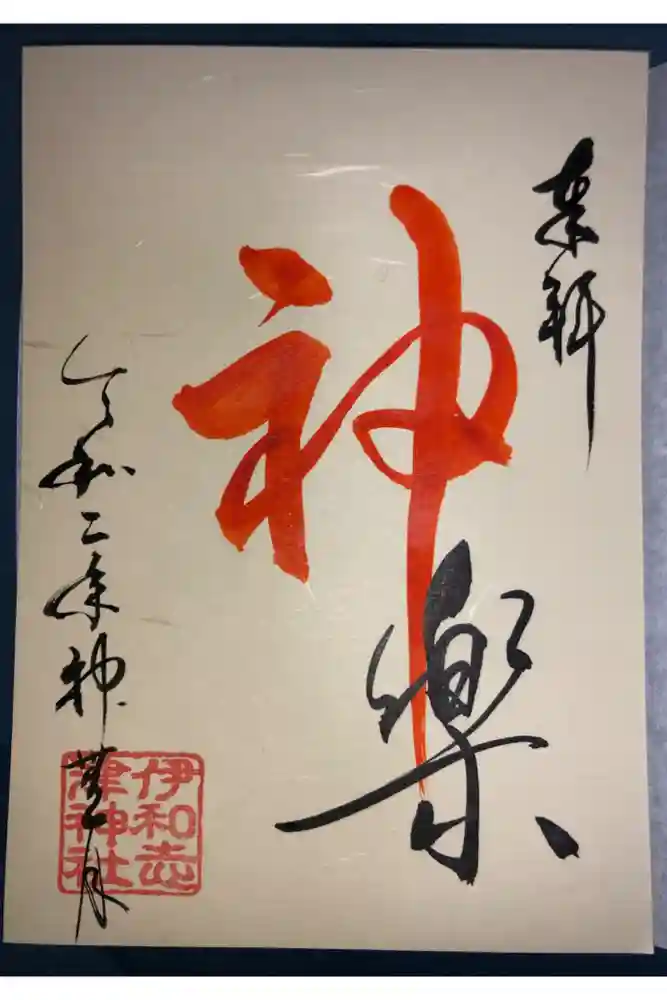 奉拝
神
楽
令和二年神無月
伊和志
津神社